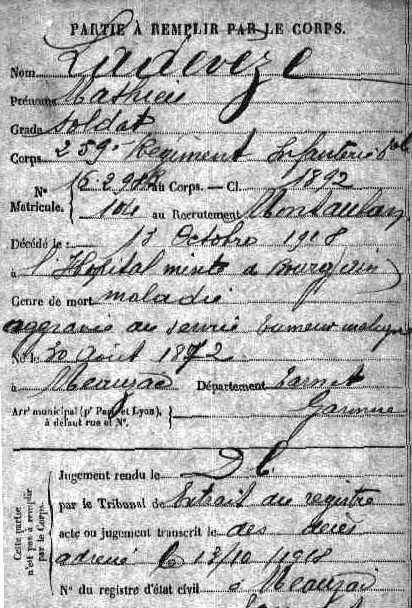 PARTIE À REMPLIR PAR LE CORPS.
Nom Ladevèze
Prénoms Mathieu
Grade Soldat
Corps 259e Régiment Infanterie
N° Matricule. 15298 au Corps. — Cl. 1892
104 au Recrutement Montauban
Décédé le : 13 Octobre 1918
à l'Hopital mixte d Bourgoin
Genre de mort maladie
aggravée au service tumeur maligne
Né le 30 Août 1872
à Meauzac Département Tarn et
Garonne
Arrt municipal (pr Paris et Lyon),
à défaut rue et N°.
Cette partie
n'est pas à remplir
par le Corps.
Jugement rendu le
par le Tribunal de Extrait du registre
acte ou jugement transcrit le des décès
adressé le 13/10/1918
N° du registre d'état civil à Meauzac